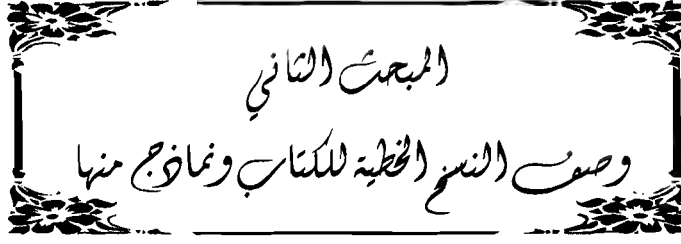 المبحث الثاني
وصف النسخ الخطية للكتاب ونماذج منها